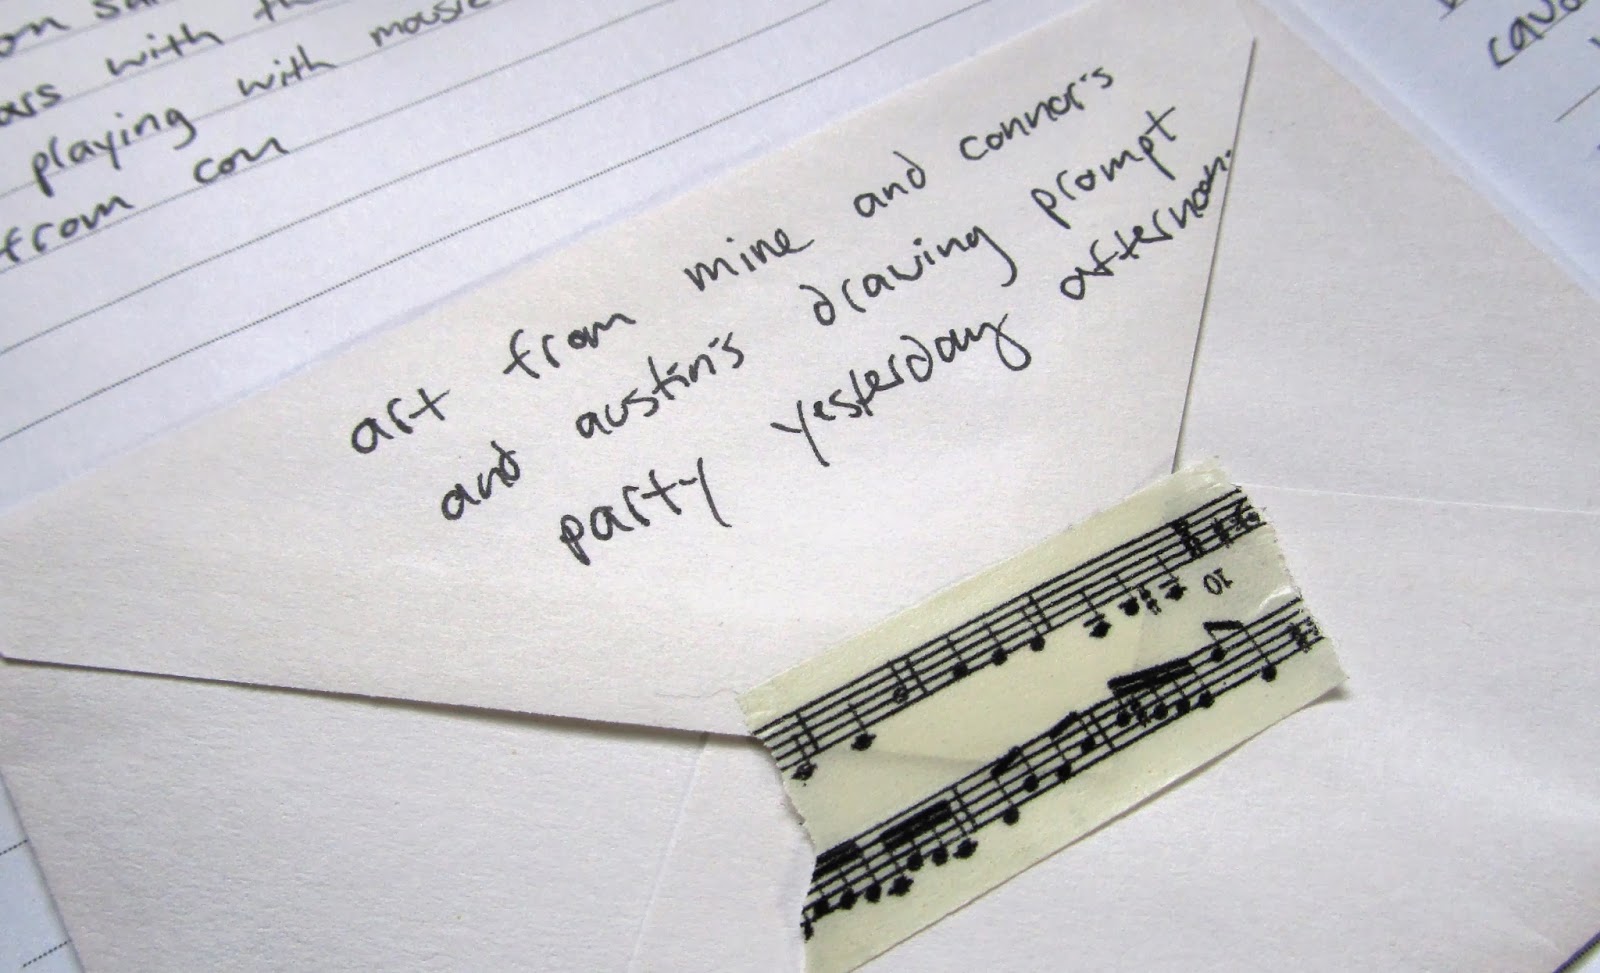 with
playing with
from con
art from mine and connor's
and austin's drawing prompt
party yesterday afternoon.
10